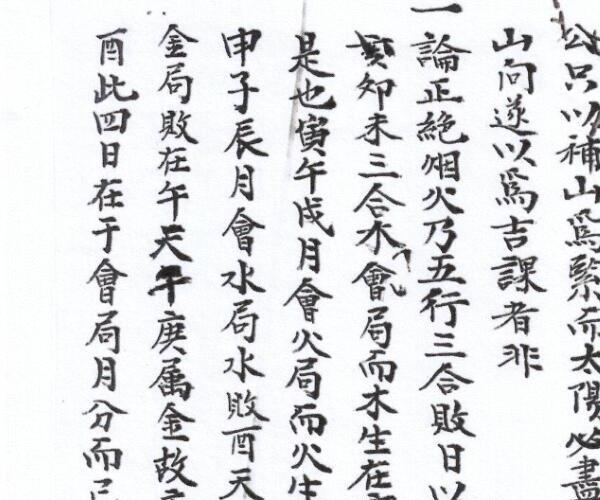 公只以補山爲緊而太陽必盡
山向遂以爲吉課者非
一論正絶烟火乃五行三合敗日以
卯未三合木會局而木生在
是也寅午戌月會火局而火生
申子辰月會水局水敗酉天
金局敗在午天干庚属金故
酉此四日在于會局月分而已